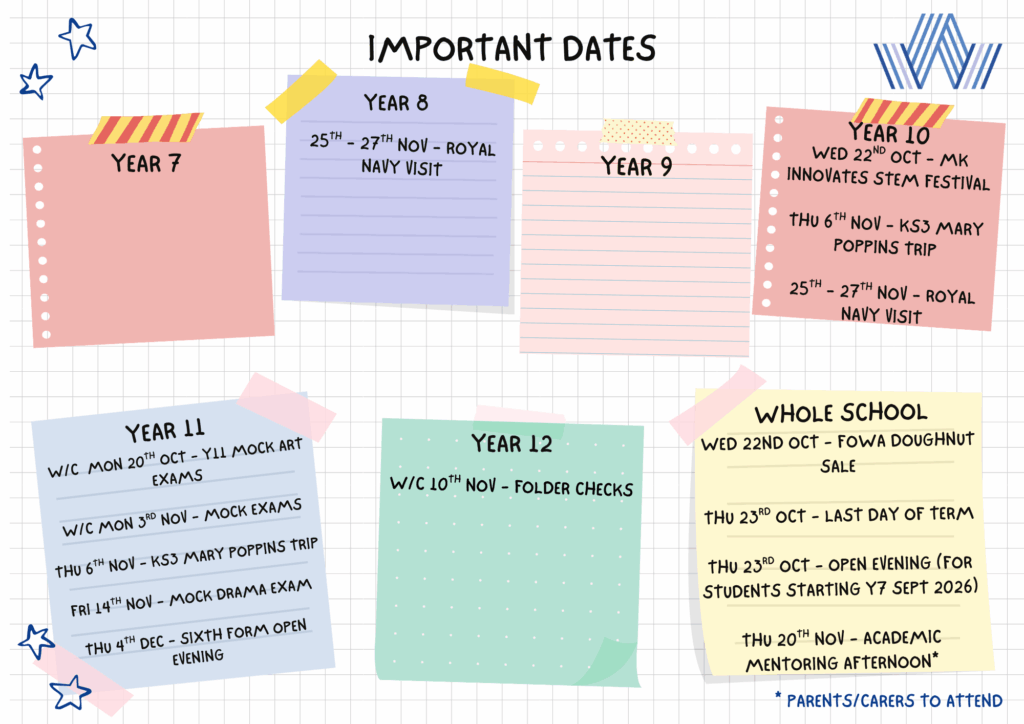 IMPORTANT DATES
YEAR 7
YEAR 8
25TH – 27TH NOV – ROYAL
NAVY VISIT
YEAR 9
YEAR 10
WED 22ND OCT – MK
INNOVATES STEM FESTIVAL
THU 6TH NOV – KS3 MARY
POPPINS TRIP
25TH – 27TH NOV – ROYAL
NAVY VISIT
YEAR 11
W/C MON 20TH OCT – Y11 MOCK ART
EXAMS
W/C MON 3RD NOV – MOCK EXAMS
THU 6TH NOV – KS3 MARY POPPINS TRIP
FRI 14TH NOV – MOCK DRAMA EXAM
THU 4TH DEC – SIXTH FORM OPEN
EVENING
YEAR 12
W/C 10TH NOV – FOLDER CHECKS
WHOLE SCHOOL
WED 22ND OCT – FOWA DOUGHNUT
SALE
THU 23RD OCT – LAST DAY OF TERM
THU 23RD OCT – OPEN EVENING (FOR
STUDENTS STARTING Y7 SEPT 2026)
THU 20TH NOV – ACADEMIC
MENTORING AFTERNOON*
* PARENTS/CARERS TO ATTEND